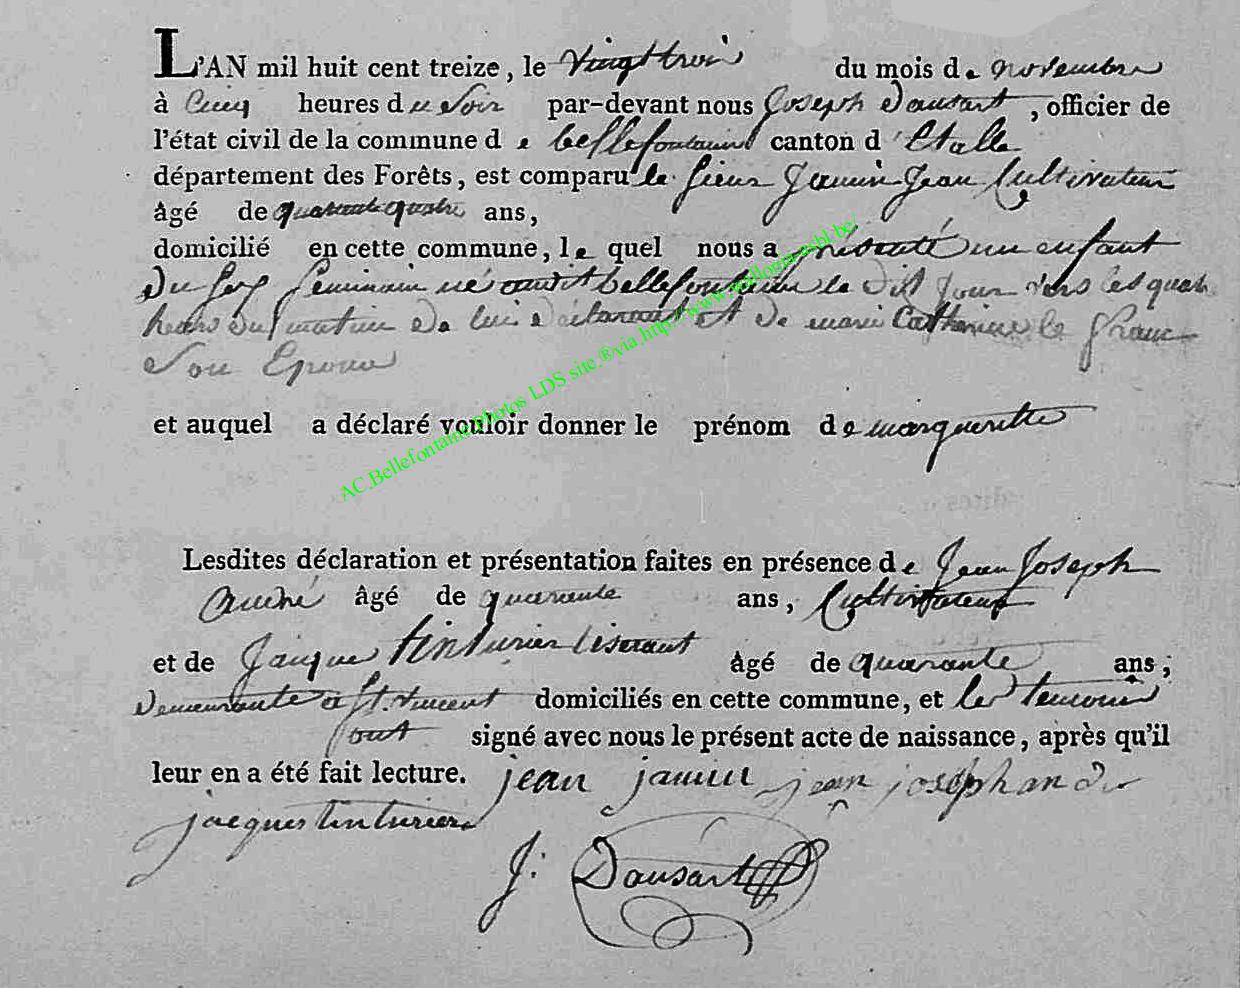 L'AN mil huit cent treize, le vingt trois du mois de novembre
à Cinq heures du Soir par-devant nous Joseph Dausart, officier de
l'état civil de la commune de bellefontaine canton d'Etalle
département des Forêts, est comparu le sieur Jamin Jean Cultivateur
âgé de quarante quatre ans,
domicilié en cette commune, lequel nous a présenté un enfant
Du Sex feminain né audit bellefontaine le Dit Jour vers les quatr
heurs du matin De lui Déclarant et de marie Catherine le franc
Son Epouse
et auquel a déclaré vouloir donner le prénom de margueritte
Lesdites déclaration et présentation faites en présence de Jean Joseph
André âgé de quarante ans, Cultivateur
et de Jacque tinturier tiserant âgé de quarante ans,
Demeurante a St. Vincent domiciliés en cette commune, et les temoins
sont signé avec nous le présent acte de naissance, après qu'il
leur en a été fait lecture. jean jamin jean joseph andre
jacques tinturier
J: Dausart
AC.Bellefontaine Photos LDS site ®via http://www.wallonia-asbl.be/